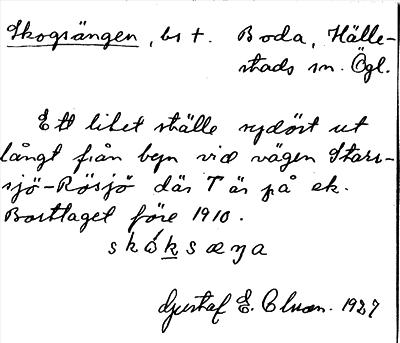 Skogsängen, bs t. Boda, Hälle-
stads sn. Ögl.
Ett litet ställe sydöst ut
långt från byn vid vägen Stars-
sjö-Rösjö där T är på ek.
Borttaget före 1910.
skóksæŋa
Gustaf E. 1927